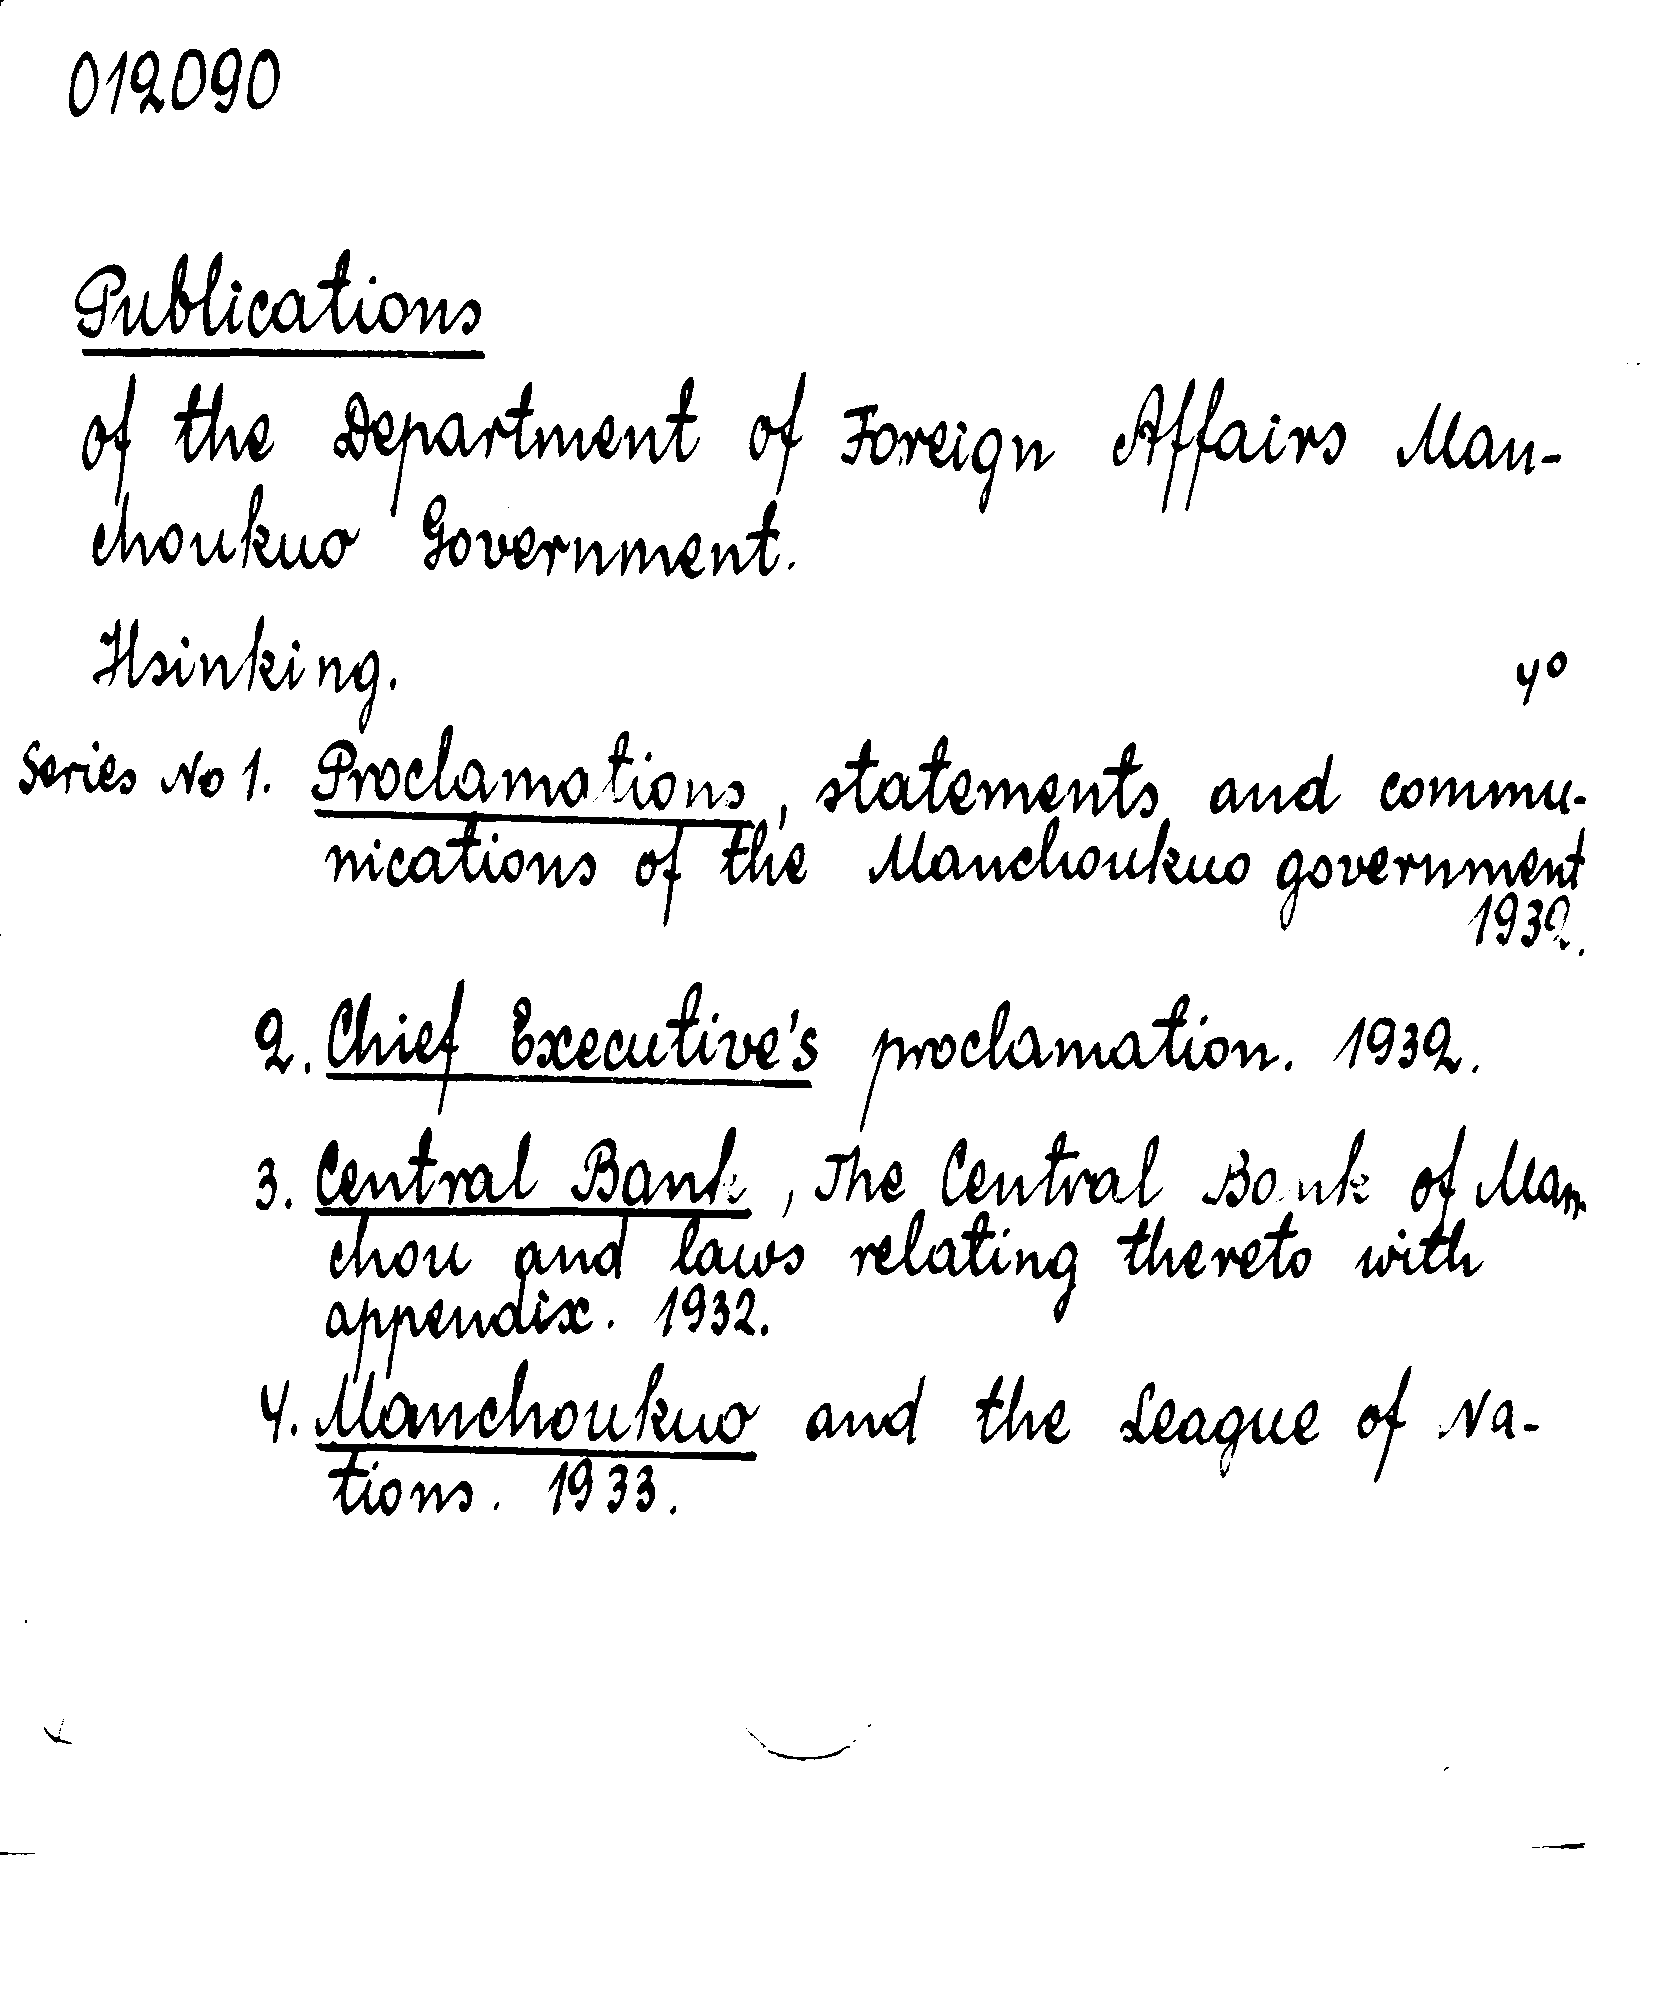 012090
Publications
of the Department of Foreign Affairs Man-
choukuo Government.
Hsinking. 4°
Series No 1. Proclamations, statements and commu-
nications of the Manchoukuo government
1932.
2. Chief Executive's proclamation. 1932.
3. Central Bank, The Central Bank of Man-
chou and laws relating thereto with
appendix. 1932.
4. Manchoukuo and the League of Na-
tions. 1933.